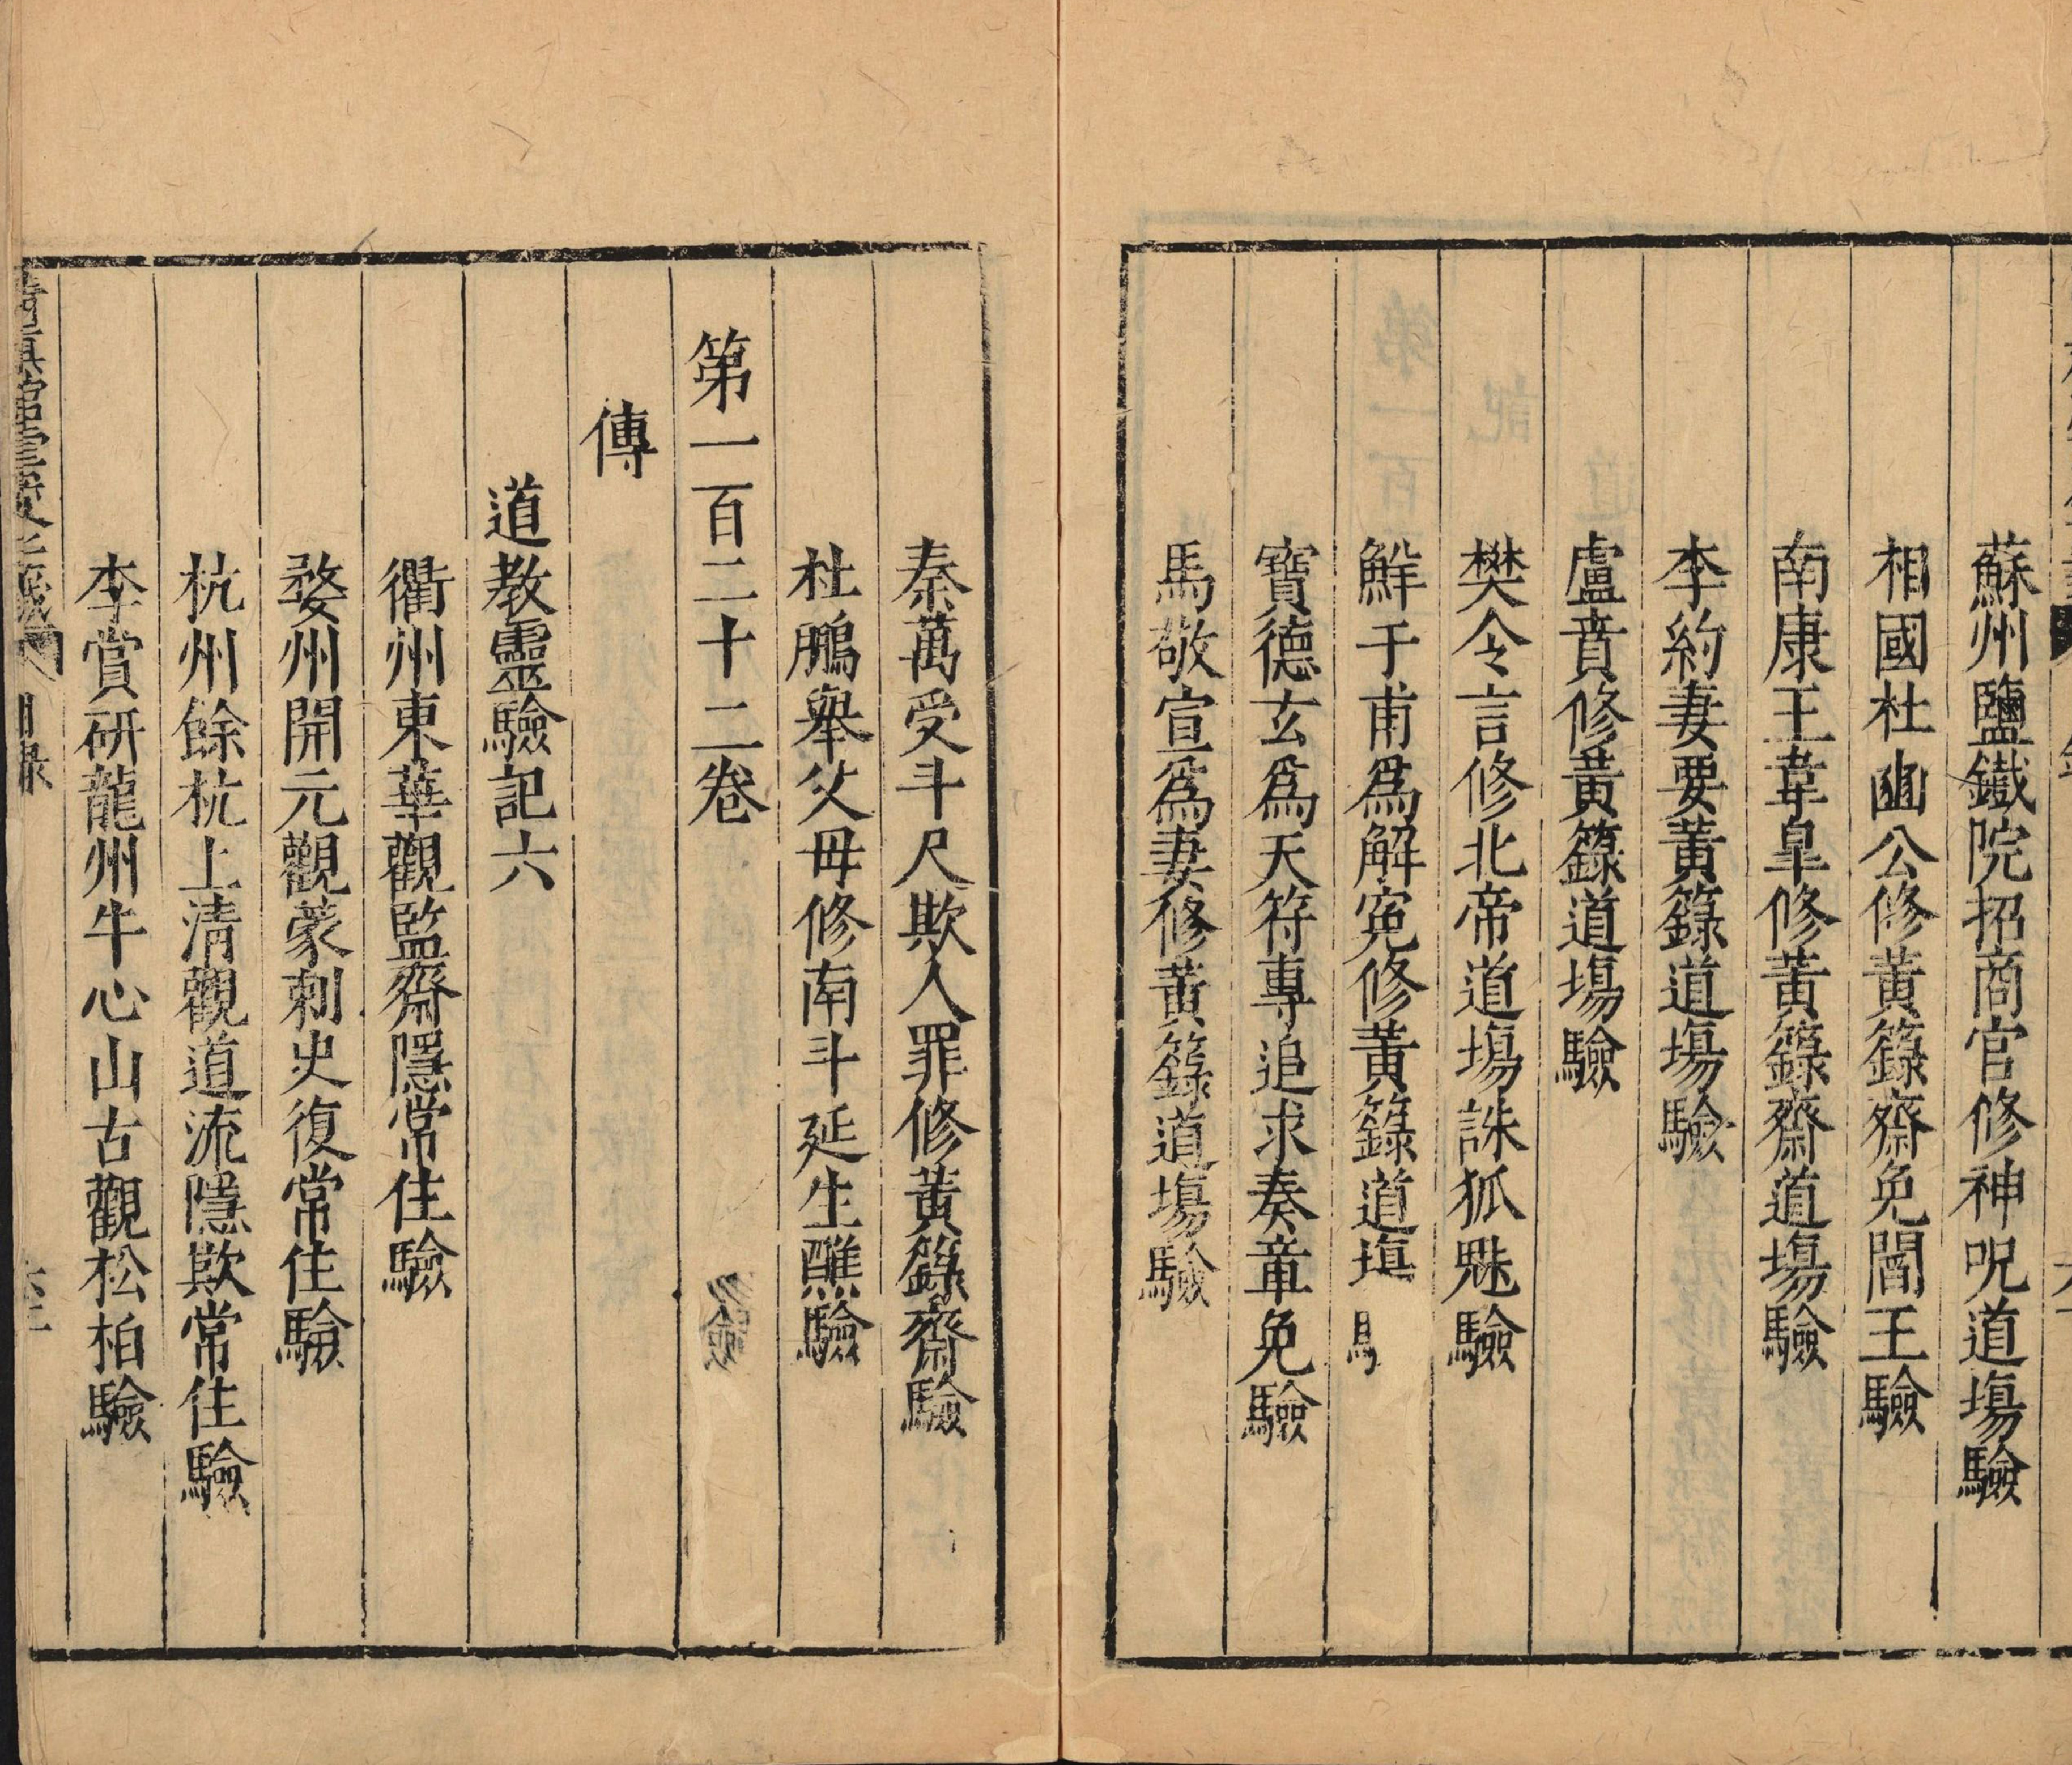 蘇州鹽鐵院招商官修神呪道塲驗
相國杜豳公修黃籙齋免閻王驗
南康王韋皐修黃籙齋道塲驗
李約妻要黃籙道塲驗
盧賁修黃籙道塲驗
樊令言修北帝道塲誅狐魅驗
鮮于甫爲解寃修黃籙道塲
竇德玄爲天符專追求奏章免驗
馬敬宣爲妻修黃籙道塲驗
秦萬受斗尺欺人罪修黃籙齋驗
杜鵬舉父母修南斗延生醮驗
第一百二十二卷
傳
道教靈驗記六
衢州東華觀監齋隱常住驗
婺州開元觀蒙刺史復常住驗
杭州餘杭上清觀道流隱欺常住驗
李賞研龍州牛心山古觀松柏驗
目錄